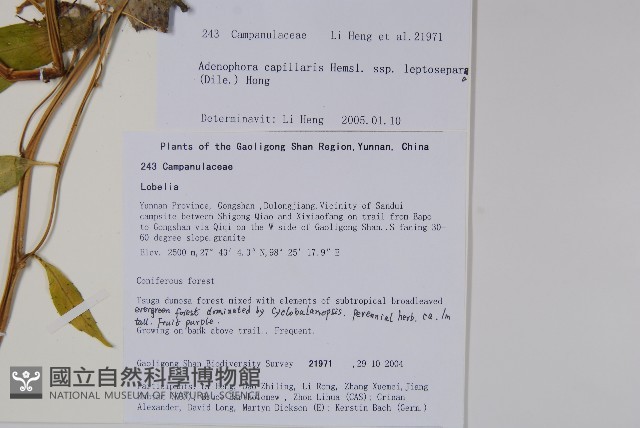 243 Campanulaceae Li Heng et al. 21971
Adenophora capillaris Hemsl. ssp. leptosepara
(Dile.) Hong
Determinavit: Li Heng 2005.01.10
Plants of the Gaoligong Shan Region, Yunnan, China
243 Campanulaceae
Lobelia
Yunnan Province. Gongshan ,Dulongjiang.Vicinity of Sandui
campsite between Shigong Qiao and Xixiaofang on trail from Bapo
to Gongshan via Qiqi on the W side of Gaoligong Shan..S facing 30-
60 degree slope.granite
Elev. 2500 m,27° 43' 4.3" N,98° 25' 17.9" E
Coniferous forest
Tsuga dumosa forest mixed with elements of subtropical broadleaved
evergreen forest dominated by Cyclobalanopsis. perennial herb. ca. 1m
tall. Fruit purple.
Growing on bank above trail.. Frequent.
Gaoligong Shan Biodiversity Survey 21971 , 29 10 2004
Li Heng, Zhiling, Li Rong, Zhang Xuemei, Jiang
, Zhou Lihua (CAS); Crinan
Alexander, David Long, Martyn Dickson (E); Kerstin Bach (Germ.)
國立自然科學博物館
NATIONAL MUSEUM OF NATURAL SCIENCE